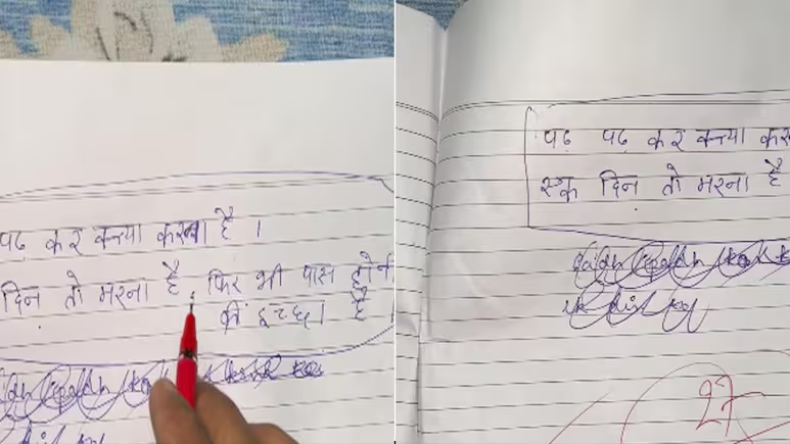 पढ कर क्या करना है ।
दिन तो मरना है, फिर भी पास होने
की इच्छा है
पढ पढ कर क्या कर
एक दिन तो मरना है
27